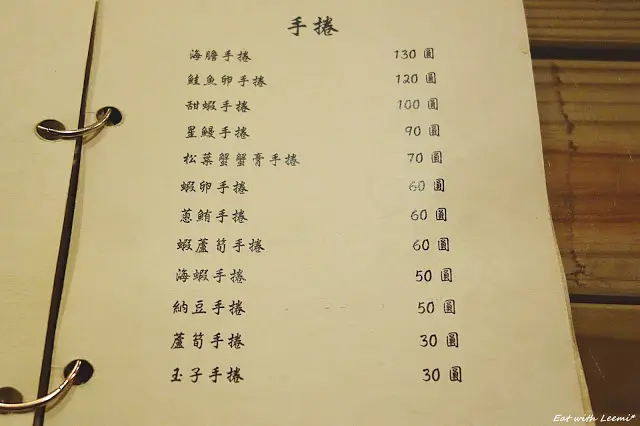 手捲
海膽手捲 130 圓
鮭魚卵手捲 120 圓
甜蝦手捲 100 圓
星鰻手捲 90 圓
松葉蟹蟹膏手捲 70 圓
蝦卵手捲 60 圓
蔥鮪手捲 60 圓
蝦蘆筍手捲 60 圓
海蝦手捲 50 圓
納豆手捲 50 圓
蘆筍手捲 30 圓
玉子手捲 30 圓
Eat with Leemi*